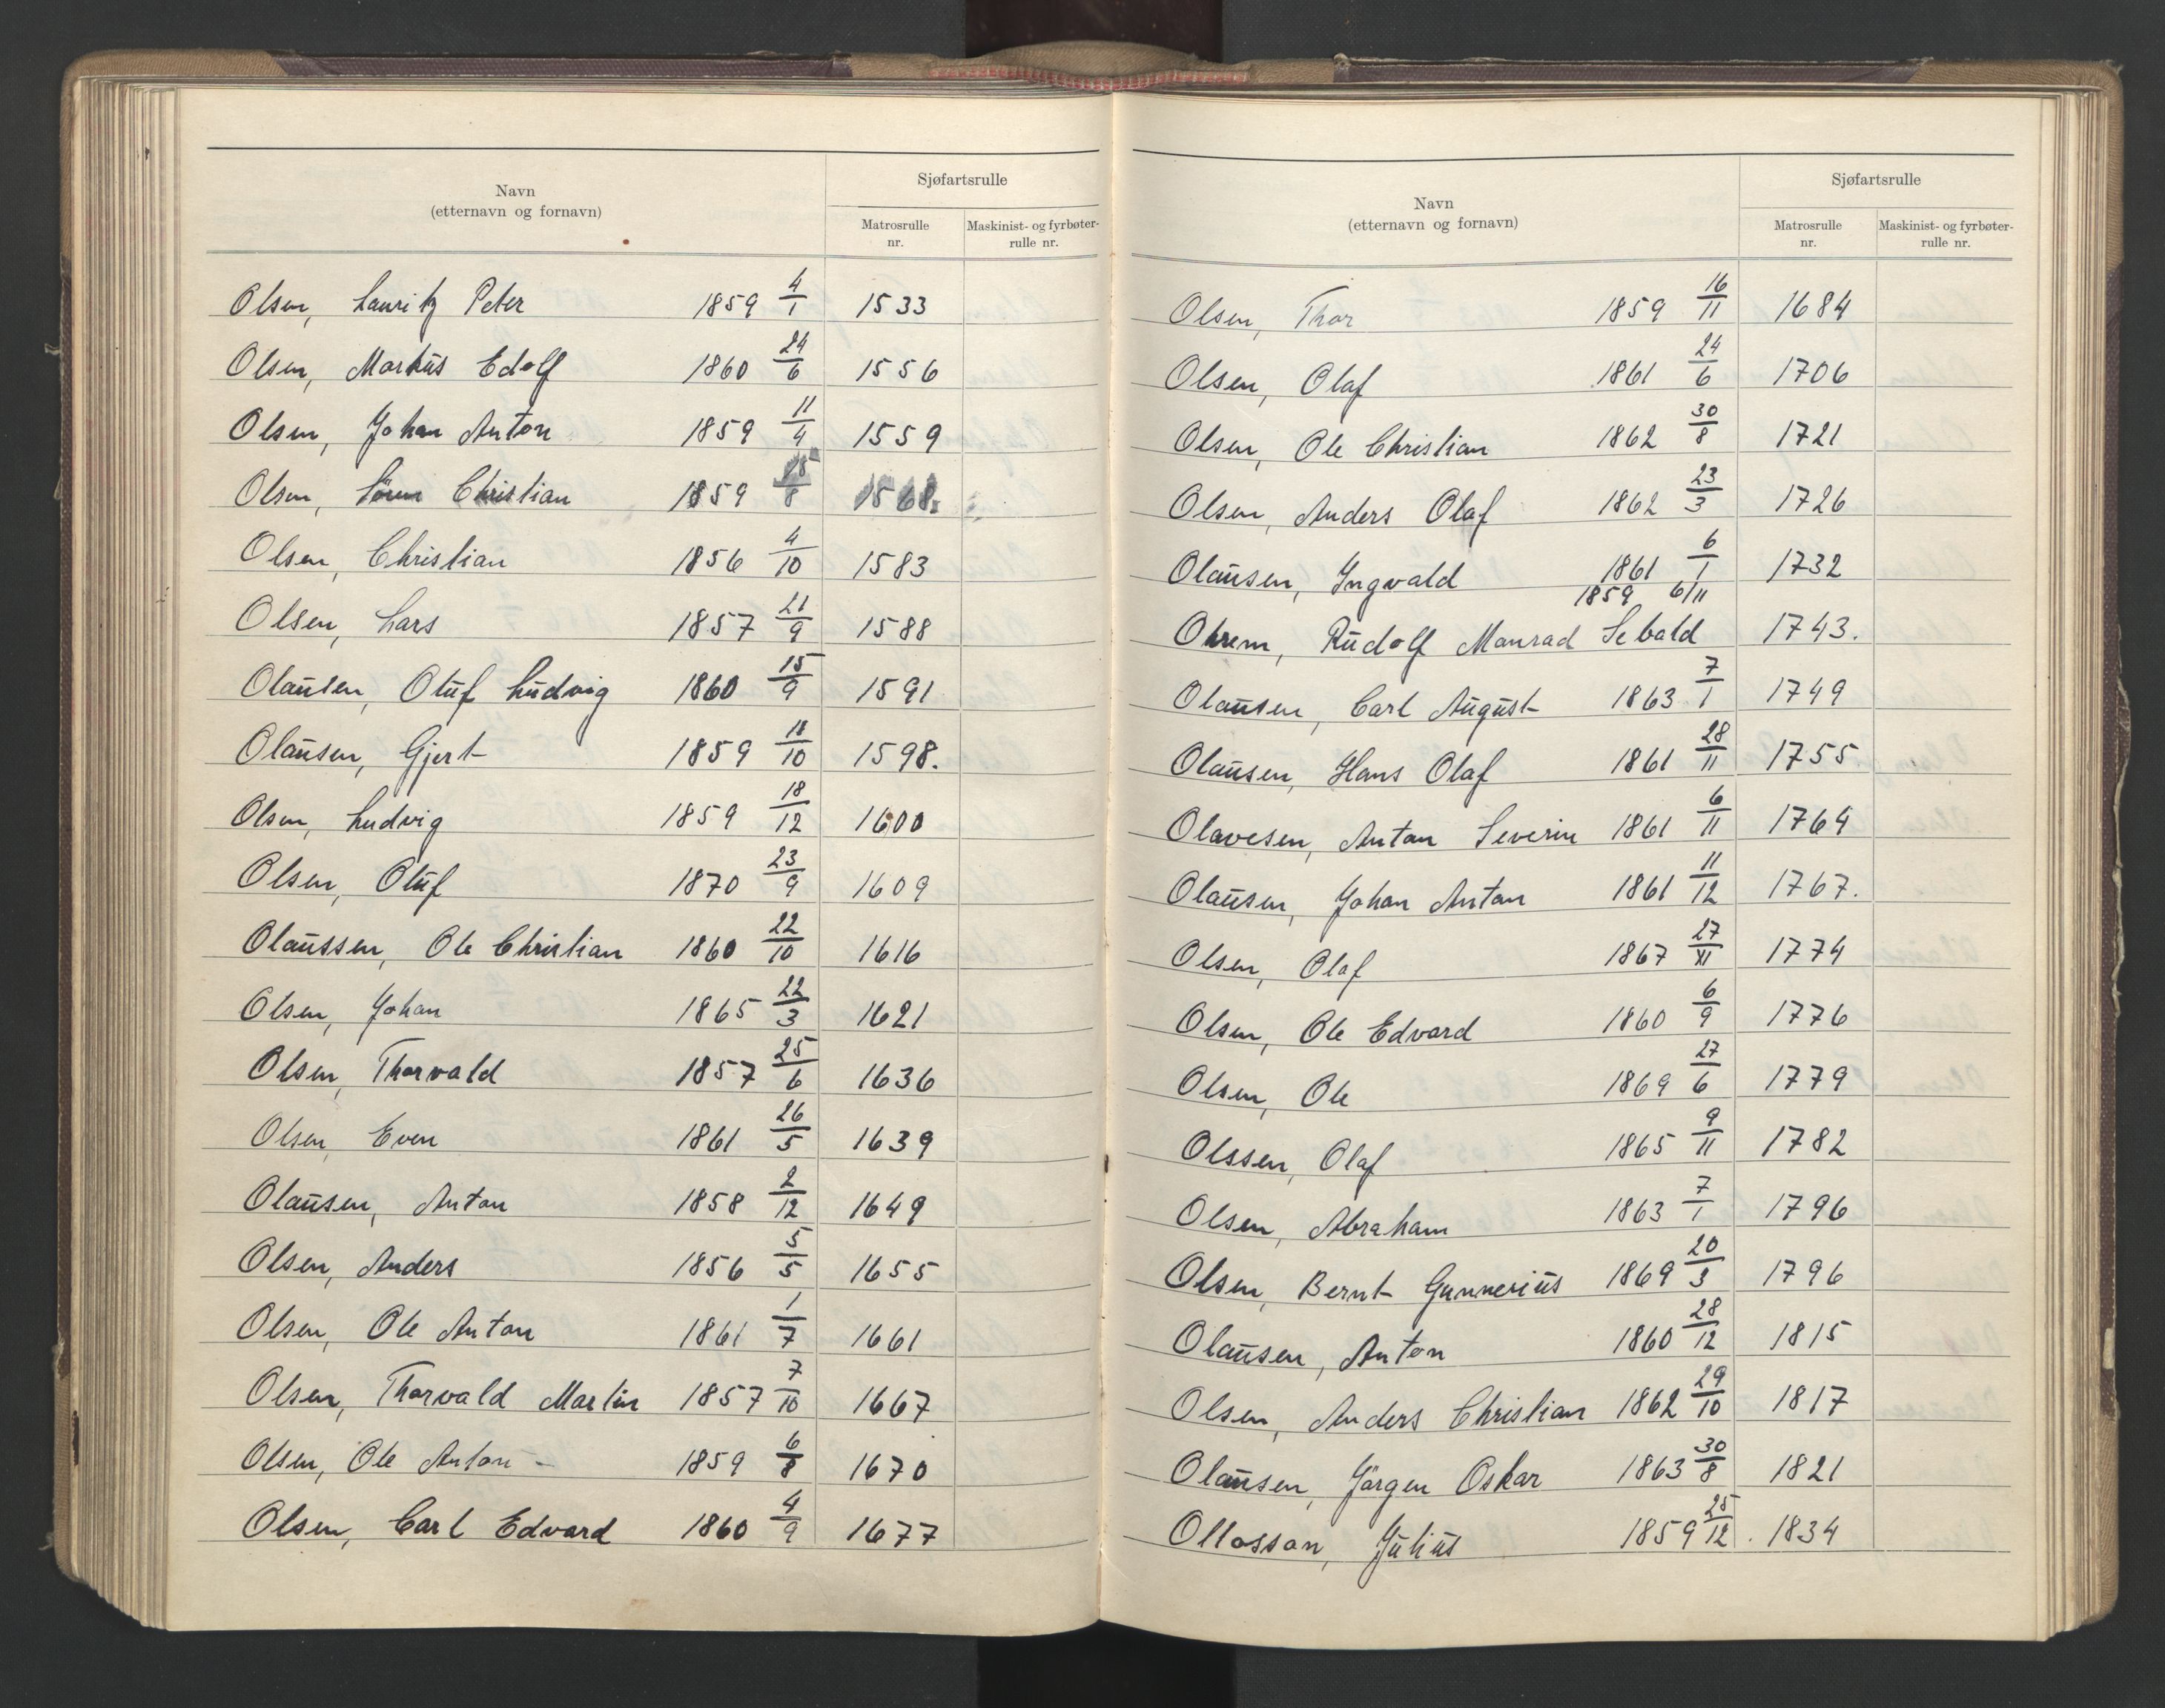 Navn
(etternavn og fornavn)
Sjøfartsrulle
Matrosrulle nr.
Maskinist- og fyrbøter-rulle nr.
Olsen, Lauritz Peter 1859 4/1 1533
Olsen, Markus Edolf 1860 24/6 1556
Olsen, Johan Anton 1859 11/4 1559
Olsen, Sören Christian 1859 1568.
Olsen, Christian 1856 4/10 1583
Olsen, Lars 1857 21/9 1588
Olausen, Oluf Ludvig 1860 15/9 1591
Olausen, Gjert 1859 18/10 1598.
Olsen, Ludvig 1859 18/12 1600
Olsen, Oluf 1870 23/9 1609
Olaussen, Ole Christian 1860 22/10 1616
Olsen, Johan 1865 22/3 1621
Olsen, Thorvald 1857 25/6 1636
Olsen, Even 1861 26/5 1639
Olausen, Anton 1858 2/12 1649
Olsen, Anders 1856 5/5 1655
Olsen, Ole Anton 1861 1/7 1661
Olsen, Thorvald Martin 1857 7/10 1667
Olsen, Ole Anton 1859 6/8 1670
Olsen, Carl Edvard 1860 4/9 1677
Navn
(etternavn og fornavn)
Sjøfartsrulle
Matrosrulle nr.
Maskinist- og fyrbøter-rulle nr.
Olsen, Thor 1859 16/11 1684
Olsen, Olaf 1861 24/6 1706
Olsen, Ole Christian 1862 30/8 1721
Olsen, Anders Olaf 1862 23/3 1726
Olausen, Ingvald 1861 6/1 1732
1859 6/11
Ohrem, Rudolf Monrad Sebald 1743.
Olausen, Carl August 1863 7/1 1749
Olausen, Hans Olaf 1861 28/11 1755
Olavesen, Anton Severin 1861 6/11 1764
Olausen, Johan Anton 1861 11/12 1767.
Olsen, Olaf 1867 27/XI 1774
Olsen, Ole Edvard 1860 6/9 1776
Olsen, Ole 1869 27/6 1779
Olssen, Olaf 1865 9/11 1782
Olsen, Abraham 1863 7/1 1796
Olsen, Bernt Gunnerius 1869 20/3 1796
Olausen, Anton 1860 28/12 1815
Olsen, Anders Christian 1862 29/10 1817
Olausen, Jörgen Oskar 1863 30/8 1821
Ottosson, Julius 1859 25/12 1834